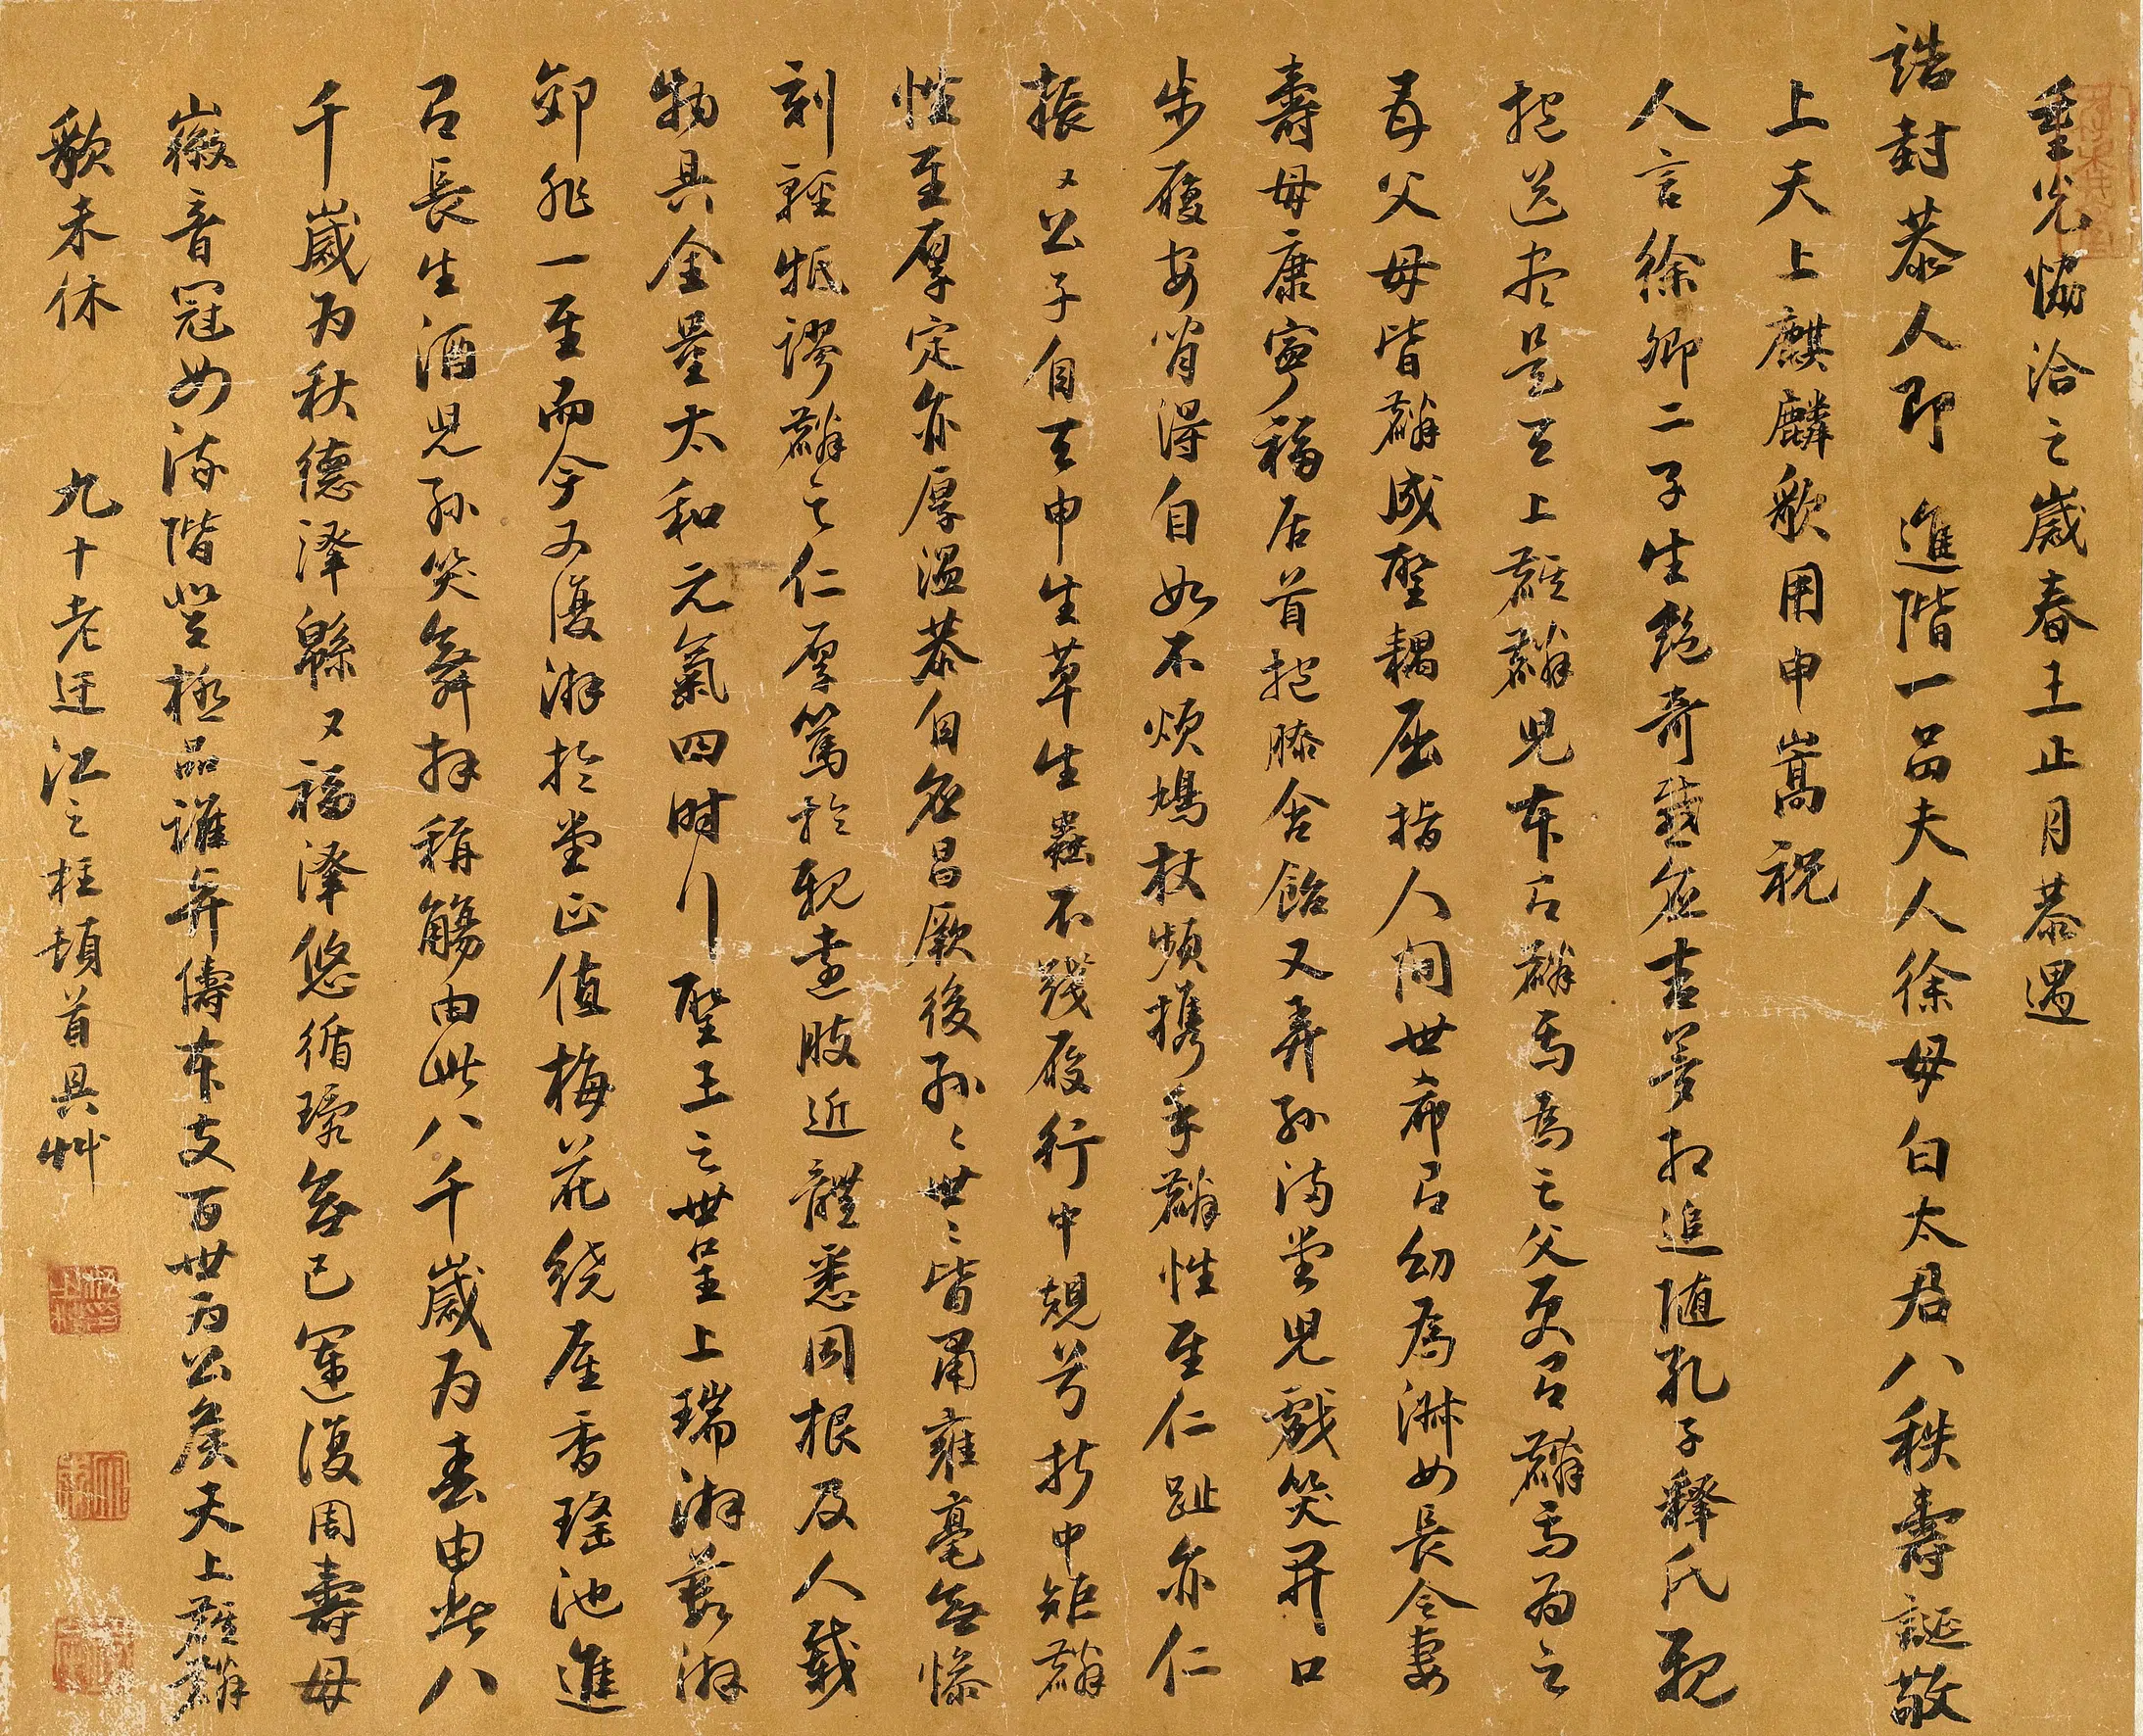 重光協洽之歲春王正月恭遇
誥封恭人即進階一品夫人徐母白太君八秩壽誕敬
上天上麒麟歌用申嵩祝
人言徐卿二子生絕奇感應吉夢相追隨孔子釋氏親
抱送盡是天上麒麟兒本以麟焉為之父更以麟焉為之
母父母皆麟成聖耦屈指人間世希以幼為淋女長令妻
壽母康寧福居首抱膝含飴又弄孫滿堂兒戲笑開口
步履安脊得自如不煩鳩杖頻攜手麟性至仁趾亦仁
振〻公子自天申生草生蟲不踐履行中規兮折中矩麟
性至厚定亦厚溫恭自應昌厥後孫〻世〻皆肅雍毫無慘
刻輕牴謬麟之仁厚篤於親遠肢近體悉周根及人載
物具全量太和元氣四時行聖王之世呈上瑞游藪游
郊非一至而今又復游於堂正值梅花繞座香瑤池進
以長生酒兒孫笑舞拜稱觴由此八千歲為春由此八
千歲為秋德澤緜〻福澤悠循環無已運復周壽母
徽音冠女流階登極品誰與儔本支百世為公矦天上麒麟
歌未休 九十老迂江之柱頓首具艸